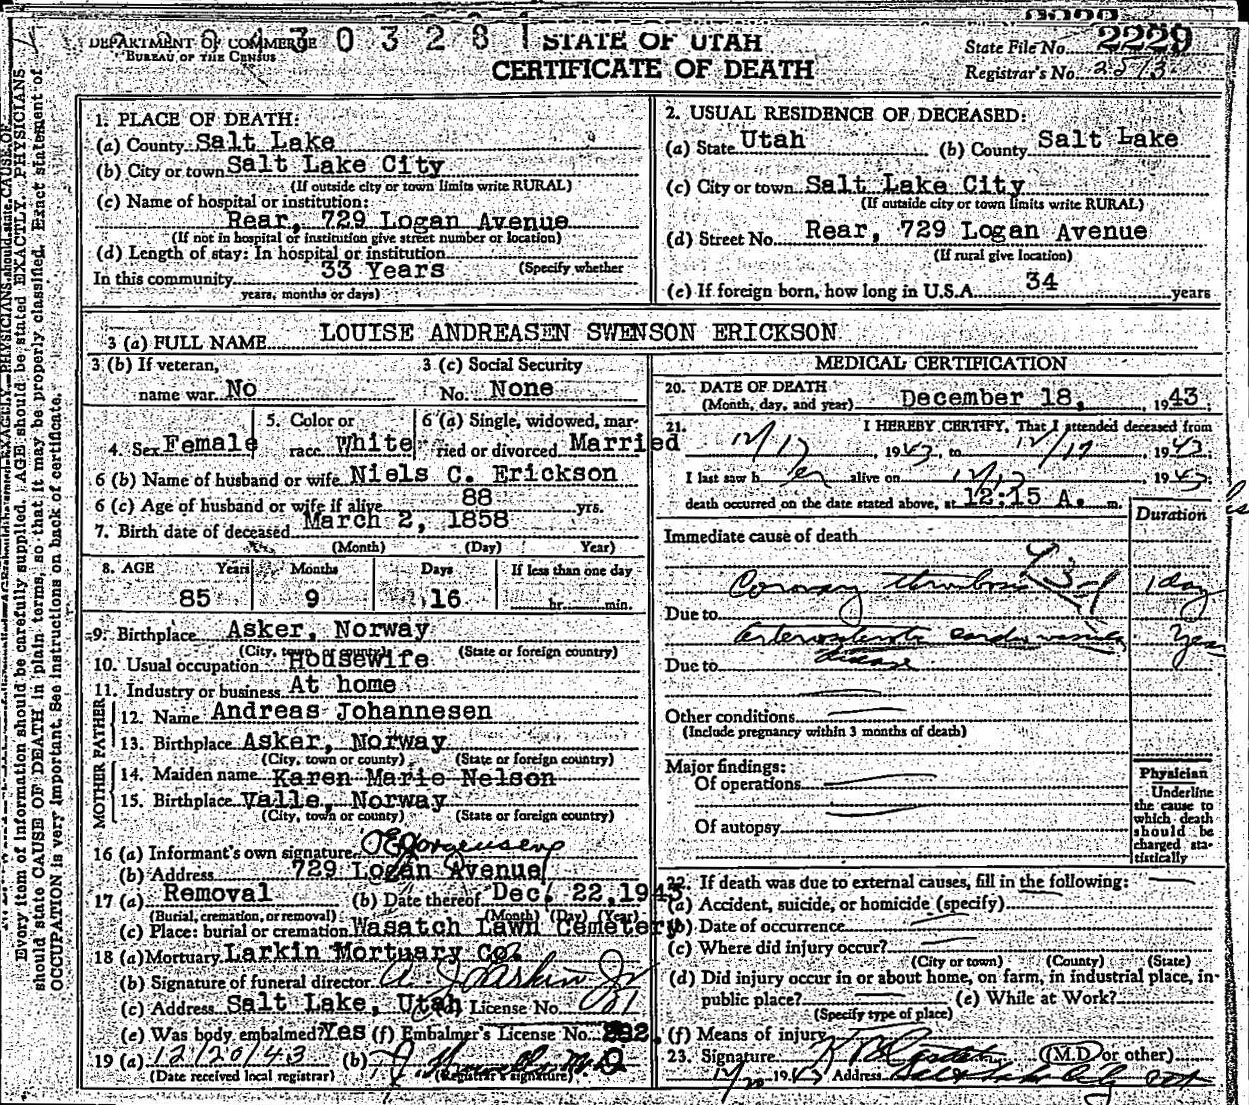 DEPARTMENT OF COMMERCE
BUREAU OF THE CENSUS
0 4 3 0 3 2 8 1
STATE OF UTAH
CERTIFICATE OF DEATH
State File No. 2229
Registrar's No. 2513
Every item of information should be carefully supplied. AGE should be stated EXACTLY. PHYSICIANS
should state CAUSE OF DEATH in plain terms, so that it may be properly classified. Exact statement of
OCCUPATION is very important. See instructions on back of certificate.
1. PLACE OF DEATH:
(a) County Salt Lake
(b) City or town Salt Lake City
(If outside city or town limits write RURAL)
(c) Name of hospital or institution:
Rear, 729 Logan Avenue
(If not in hospital or institution give street number or location)
(d) Length of stay: In hospital or institution
In this community 33 Years (Specify whether
years, months or days)
2. USUAL RESIDENCE OF DECEASED:
(a) State Utah (b) County Salt Lake
(c) City or town Salt Lake City
(If outside city or town limits write RURAL)
(d) Street No. Rear, 729 Logan Avenue
(If rural give location)
(e) If foreign born, how long in U.S.A. 34 years
3 (a) FULL NAME LOUISE ANDREASEN SWENSON ERICKSON
3 (b) If veteran,
name war No
3 (c) Social Security
No. None
4. Sex Female
5. Color or
race White
6 (a) Single, widowed, mar-
ried or divorced Married
6 (b) Name of husband or wife Niels C. Erickson
6 (c) Age of husband or wife if alive 88 yrs.
7. Birth date of deceased March 2, 1858
(Month) (Day) Year)
8. AGE Years Months Days If less than one day
85 9 16 hr. min.
9. Birthplace Asker, Norway
(City, town or county) (State or foreign country)
10. Usual occupation Housewife
11. Industry or business At home
FATHER
12. Name Andreas Johannesen
13. Birthplace Asker, Norway
(City, town or county) (State or foreign country)
MOTHER
14. Maiden name Karen Marie Nelson
15. Birthplace Valle, Norway
(City, town or county) (State or foreign country)
16 (a) Informant's own signature
(b) Address 729 Logan Avenue
17 (a) Removal (b) Date thereof Dec. 22, 1943
(Burial, cremation, or removal) (Month) (Day) (Year)
(c) Place: burial or cremation Wasatch Lawn Cemetery
18 (a) Mortuary Larkin Mortuary Co.
(b) Signature of funeral director A. J. Larkin Jr
(c) Address Salt Lake, Utah (d) License No.
(e) Was body embalmed? Yes (f) Embalmer's License No.
19 (a) 12/20/43 (b)
(Date received local registrar) (Registrar's signature)
MEDICAL CERTIFICATION
20. DATE OF DEATH
(Month, day, and year) December 18, 1943.
21. I HEREBY CERTIFY, That I attended deceased from
12/17, 1943, to 12/17 1943.
I last saw her alive on 12/17 1943.
death occurred on the date stated above, at 12:15 A. m.
Duration
Immediate cause of death
Coronary thrombosis 1 day
Due to
disease
Due to
Other conditions
(Include pregnancy within 3 months of death)
Major findings:
Of operations
Of autopsy
Physician
Underline
the cause to
which death
should be
charged sta-
tistically
22. If death was due to external causes, fill in the following:
(a) Accident, suicide, or homicide (specify)
(b) Date of occurrence
(c) Where did injury occur?
(City or town) (County) (State)
(d) Did injury occur in or about home, on farm, in industrial place, in
public place? (e) While at Work?
(Specify type of place)
(f) Means of injury
23. Signature (M.D. or other)
12/20 1943 Address Salt Lake City Ut